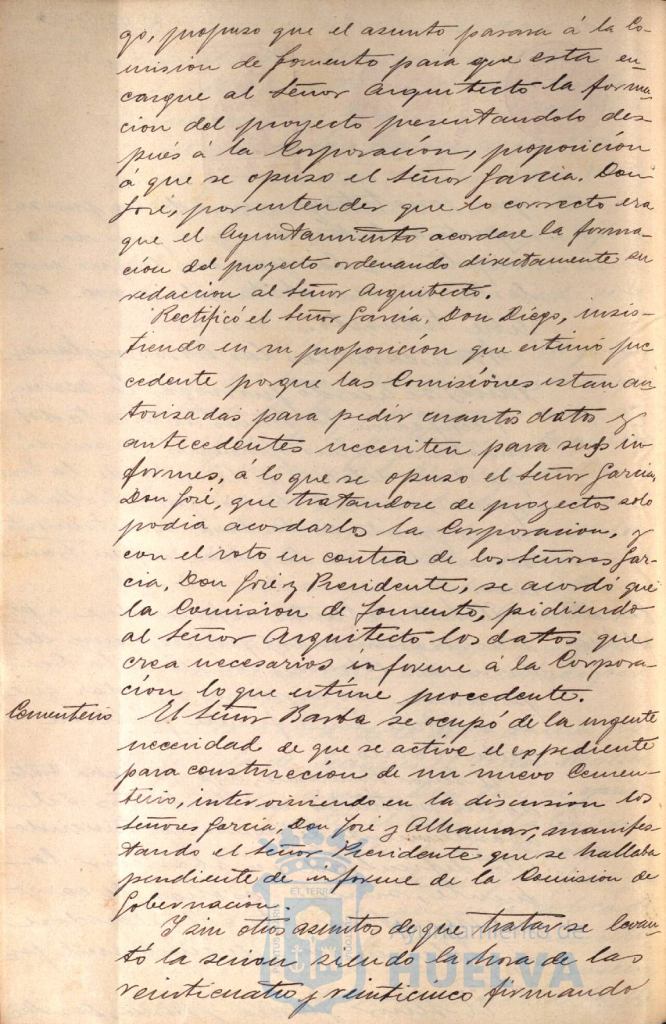 go, propuso que el asunto pasara á la Co-
mision de fomento para que esta en-
cargue al Señor Arquitecto la forma-
cion del proyecto presentandolo des-
pués á la Corporación, proposición
á que se opuso el Señor Garcia, Don
José, por entender que lo correcto era
que el Ayuntamiento acordase la forma-
cion del proyecto ordenando directamente su
redaccion al Señor Arquitecto.
Rectificó el Señor Garcia, Don Diego, insis-
tiendo en su proposición que estimó pro
cedente porque las Comisiónes estan au
torisadas para pedir cuantos datos y
antecedentes necesiten para sus in
formes, á lo que se opuso el Señor Garcia,
Don José, que tratandose de proyectos solo
podia acordarlos la Corporacion, y
con el voto en contra de los Señores Gar-
cia, Don José y Presidente, se acordó que
la Comision de Fomento, pidiendo
al Señor Arquitecto los datos que
crea necesarios informe á la Corpora-
ción lo que estime procedente.
Cementerio El Señor Barba se ocupó de la urgente
necesidad de que se active el expediente
para construcción de un nuevo Cemen-
terio, interviniendo en la discusion los
Señores Garcia, Don José y Alhamar, manifes
tando el Señor Presidente que se hallaba
pendiente de informe de la Comision de
Gobernacion.
Y sin otros asuntos de que tratar se levan-
tó la sesion siendo la hora de las
veinticuatro y veinticinco firmando
Ayuntamiento de
HUELVA